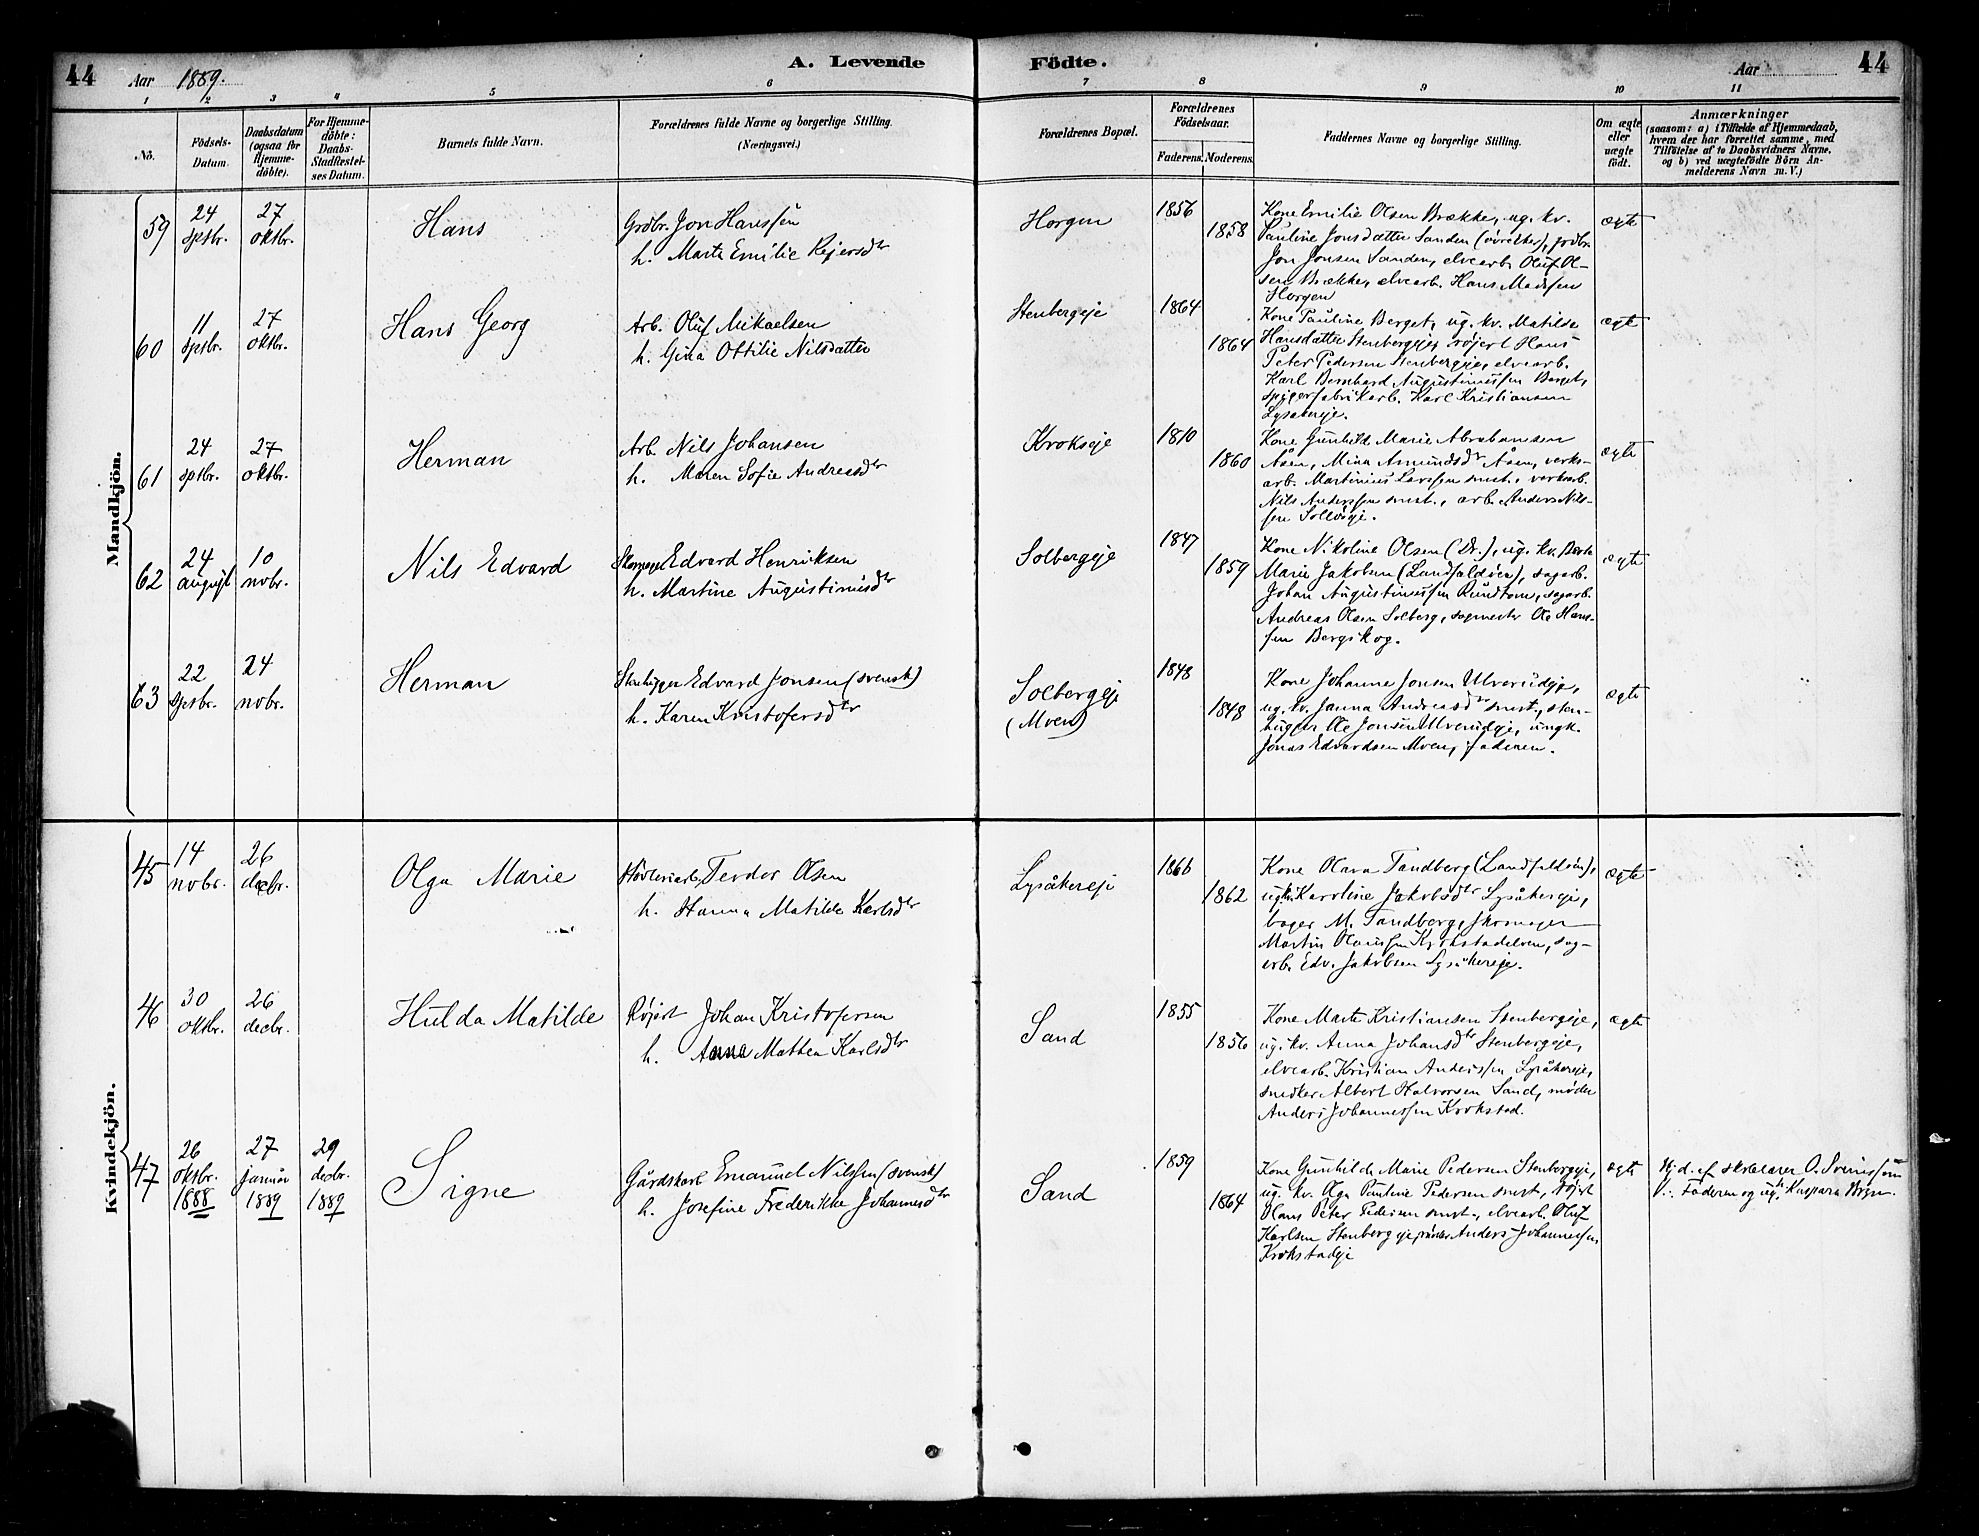 44
Aar 1889.
A. Levende
Födte.
Aar
44
1 2 3 4 5 6 7 8 9 10 11
No.
Födsels-
Datum.
Daabsdatum
(ogsaa för
Hjemme-
döbte).
For Hjemme-
döbte:
Daabs-
Stadfæstel-
ses Datum.
Barnets fulde Navn.
Forældrenes fulde Navne og borgerlige Stilling.
(Næringsvei.)
Forældrenes Bopæl.
Forældrenes
Födselsaar.
Faderens.
Moderens.
Faddernes Navne og borgerlige Stilling.
Om ægte
eller
uægte
födt.
Anmærkninger
(saasom: a) i Tilfælde af Hjemmedaab,
hvem der har forrettet samme, med
Tilföielse af to Daabsvidners Navne,
og b) ved uægtefödte Börn An-
melderens Navn m. V.)
Mandkjön.
59
24
sptbr.
27
oktbr.
Hans
Grdbr. Jon Hanssen
h. Marte Emilie Rejersdtr
Horgen
1856
1858
Kone Emilie Olsen Brække, ug. kv.
Pauline Jonsdatter Sanden (övre), grdbr.
Jon Jonsen Sanden, elvearb. Oluf Ol-
sen Brække, elvearb. Hans Madssen
Horgen
ægte
60
11
sptbr.
27
oktbr.
Hans Georg
Arb. Oluf Mikaelsen
h. Gina Ottilie Nilsdatter
Stenbergeje
1864
1864
Kone Pauline Berget, ug. kv. Matilde
Hansdatter Stenbergeje, röjert Hans
Peter Pedersen Stenbergeje, elvearb.
Karl Bernhard Augustinussen Berget,
spigerfabrikarb. Karl Kristiansen
Lysakereje.
ægte
61
24
sptbr.
27
oktbr.
Herman
Arb. Nils Johansen
h. Maren Sofie Andreasdtr
Krokseje
1810
1860
Kone Gunhild Marie Abrahamsen
Åsen, Mina Asmundsdtr Åsen, verks-
arb. Martinius Larssen smst., verksarb.
Nils Anderssen smst., arb. Anders Nils-
sen
ægte
62
24
august
10
novbr.
Nils Edvard
Skomager Edvard Henriksen
h. Martine Augustinusdtr
Solbergeje
1847
1859
Kone Nikoline Olsen (Dr.), ug. kv. Berte
Marie Jakobsen (Landfaldöen), sagarb.
Johan Augustinussen Rundtom, sagarb.
Andreas Olsen Solberg, sagmester Ole Hans-
sen Bergskog.
ægte
63
22
sptbr.
24
novbr.
Herman
Stenhugger Edvard Jonsen (svensk)
h. Karen Kristofersdtr
Solbergeje
(Moen)
1848
1848
Kone Johanne Jonsen Ulverudeje,
ug. kv. Janna Andreasdtr smst., sten-
hugger Ole Jonsen Ulverudeje, ungk.
Jonas Edvardsen Moen, faderen.
ægte
Kvindekjön.
45
14
novbr.
26
decbr.
Olga Marie
Hövleriarb. Teodor Olsen
h. Hanna Matilde Karlsdtr
Lysåkereje
1866
1862
Kone Olava Tandberg (Landfaldöen),
ug. kv. Karoline Jakobsdtr Lysåkereje,
bager M. Tandberg, skomager
Martin Olaussen Krokstadelven, sag-
arb. Edv. Jakobsen Lysåkereje.
ægte
46
30
oktbr.
26
decbr.
Hulda Matilde
Röjert Johan Kristofersen
h. Anna Mathea Karlsdtr
Sand
1855
1856
Kone Marte Kristiansen Stenbergeje,
ug. kv. Anna Johansdtr Stenbergeje,
elvearb. Kristian Anderssen Lysåkereje,
snedker Albert Halvorsen Sand, möller
Anders Johannessen Krokstad.
ægte
47
26
oktbr.
1888
27
januar
1889
29
decbr.
1889
Signe
Gårdskarl Emanuel Nilssen (svensk)
h. Josefine Frederikke Johannesdtr
Sand
1859
1864
Kone Gunhilde Marie Pedersen Stenbergeje,
ug. kv. Olga Pauline Pedersen smst., röjert
Hans Peter Pedersen smst., elvearb. Oluf
Karlsen Stenbergeje, möller Anders Johannessen
Krokstadeje
ægte
Hj.d. af skolelærer O. Svenssen
V.: Faderen og ug. Kaspara